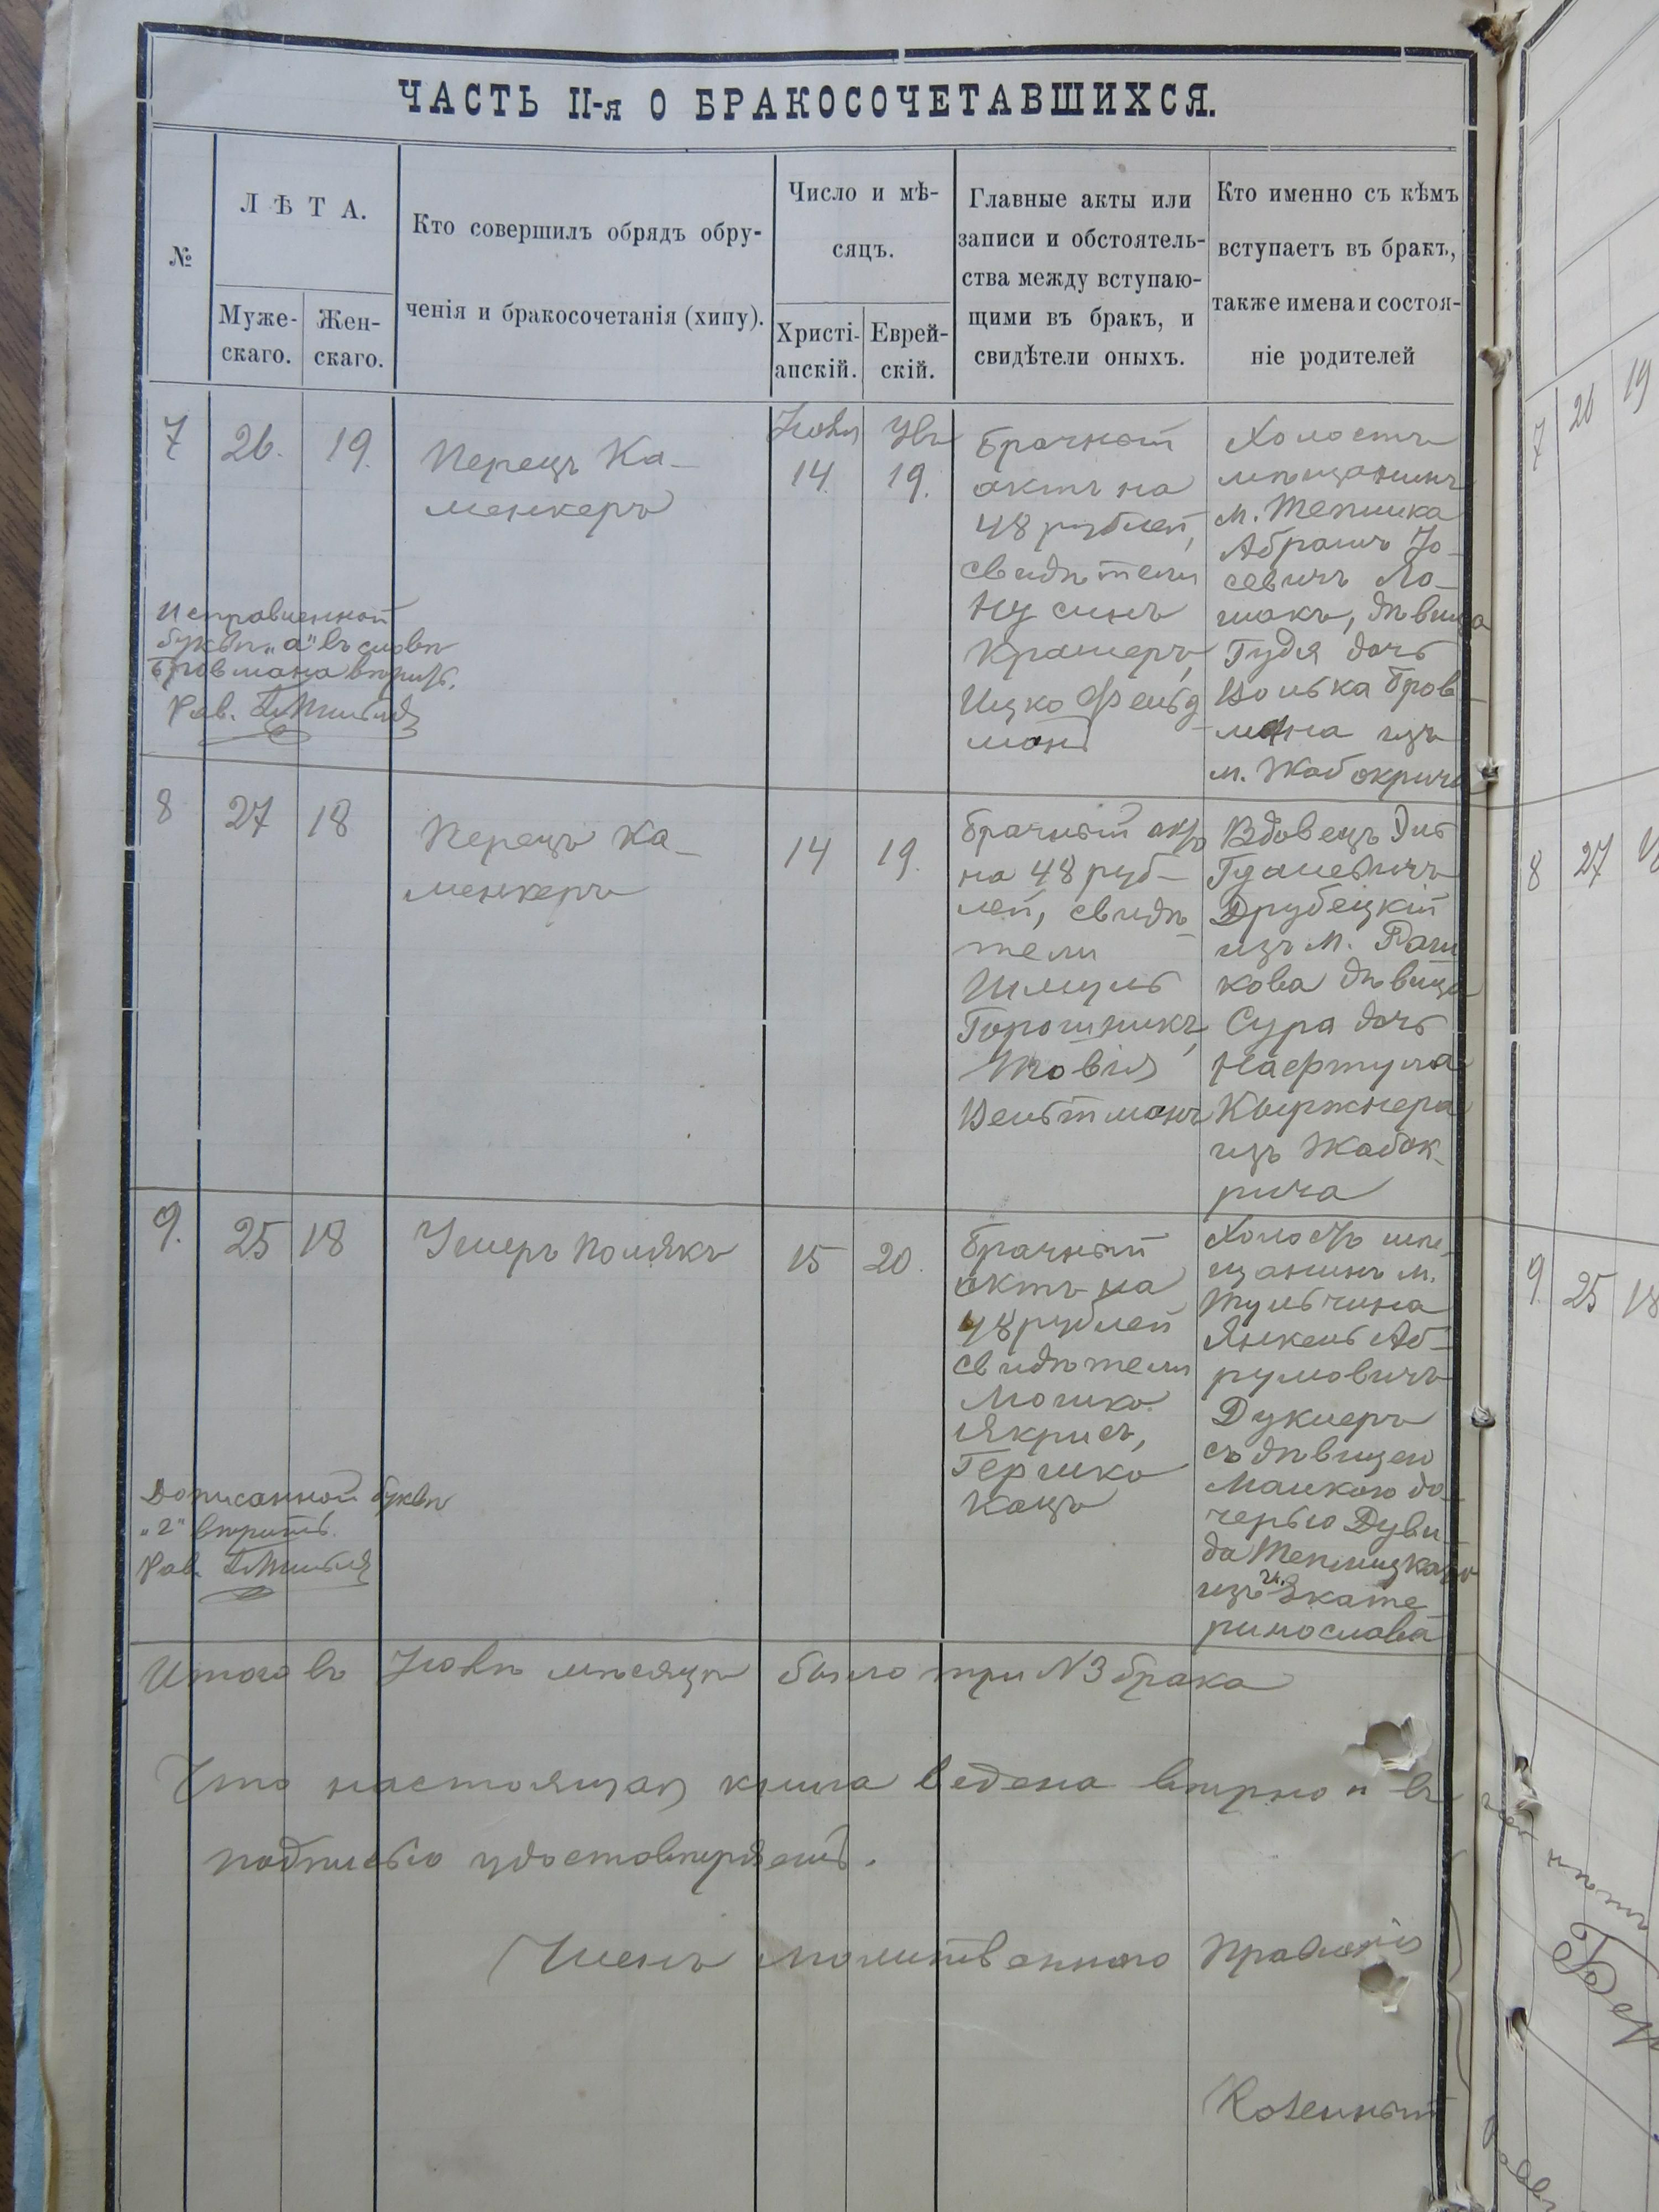 ЧАСТЬ II-я О БРАКОСОЧЕТАВШИХСЯ.
№
ЛѢТА.
Муже-
скаго.
Жен-
скаго.
Кто совершилъ обрядъ обру-
ченія и бракосочетанія (хипу).
Число и мѣ-
сяцъ.
Христі-
анскій.
Еврей-
скій.
Главные акты или
записи и обстоятель-
ства между вступаю-
щими въ бракъ, и
свидѣтели оныхъ.
Кто именно съ кѣмъ
вступаетъ въ бракъ,
также имена и состоя-
ніе родителей
7
26.
19.
Перецъ Ка-
менкеръ
14.
19.
Брачный
актъ на
48 рублей,
свидѣтели
Нусинъ
Крамеръ,
Ицко Фельд
манъ
Холостъ
мѣщанинъ
м. Теплика
Абрамъ Іо-
севичъ Ло-
шакъ, дѣвица
Гудя дочь
Волька Бров-
мана изъ
м. Жабокрича
Исправленной
буквѣ „а" въ словѣ
Бровмана вѣрить.
Рав.
8
27
18
Перецъ Ка-
менкеръ
14
19.
Брачный актъ
на 48 руб-
лей, свидѣ-
тели
Шмуль
Горошникъ,
Товія
Вельтманъ
Вдовецъ
Друбецкій
изъ м. Раш
кова дѣвица
Сура дочь
Нафтула
Кыржнера
изъ Жабок-
рича
9.
25
18
Умеръ Полякъ
15
20.
Брачный
актъ на
48 рублей
свидѣтели
Мошко
Якрисъ,
Гершко
Кацъ
Холостъ мѣ-
щанинъ м.
Тульчина
Янкель Аб-
румовичъ
Дуклеръ
съ дѣвицею
Малкою до-
черью Дуви-
да Теплицкаго
изъ г. Екате-
ринослава
Дописанной буквѣ
„г" вѣрить.
Рав.
Итого въ Іюнѣ мѣсяцѣ было три N3 брака
Что настоящая книга ведена вѣрно въ
подписью удостовѣряемъ.
Членъ Молитвенного Правленія
7
26
19
8
27
9.
25
18